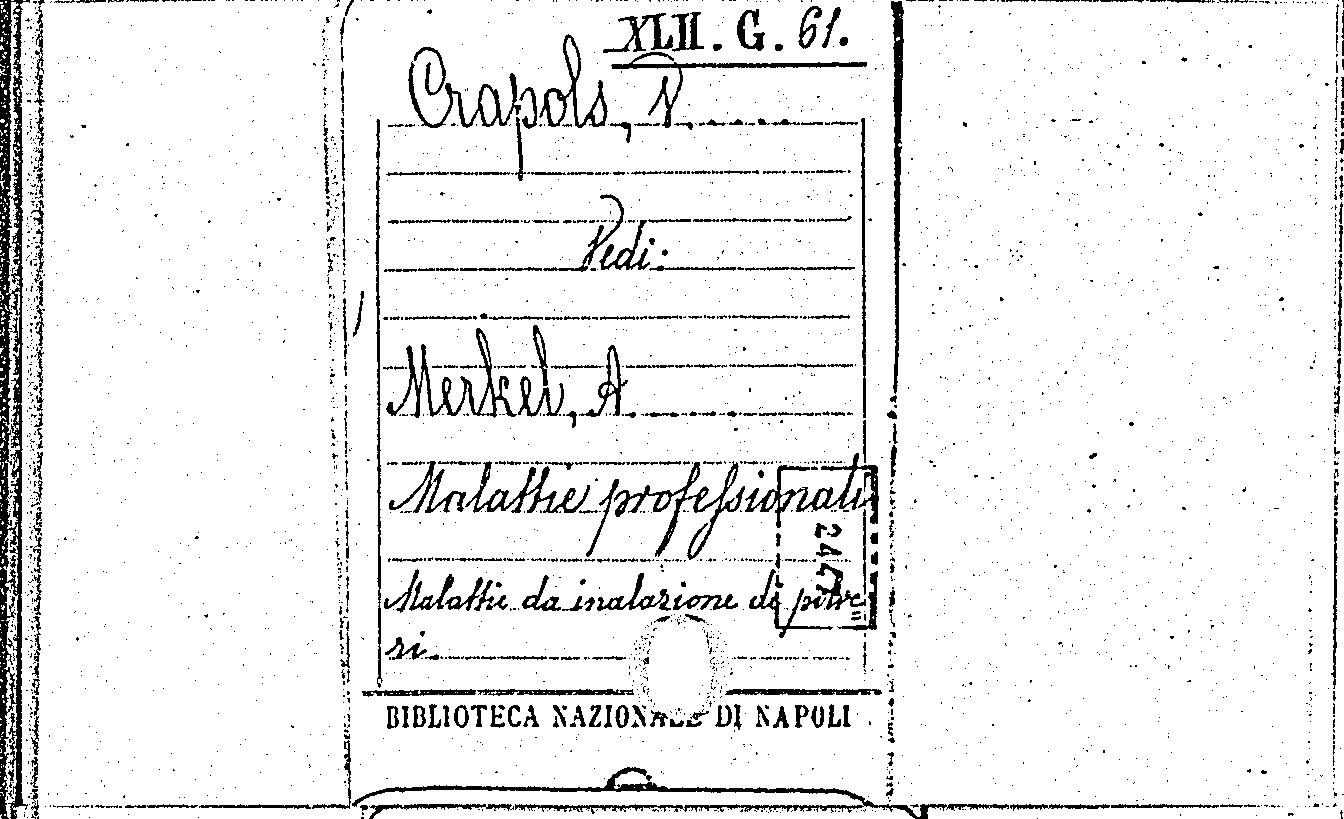 XLII. G. 61.
Crapols, V.....
Vedi:
Merkel, A.......
Malattie professionali
2447
Malattie da inalazione di polve
ri.
BIBLIOTECA NAZIONALE DI NAPOLI